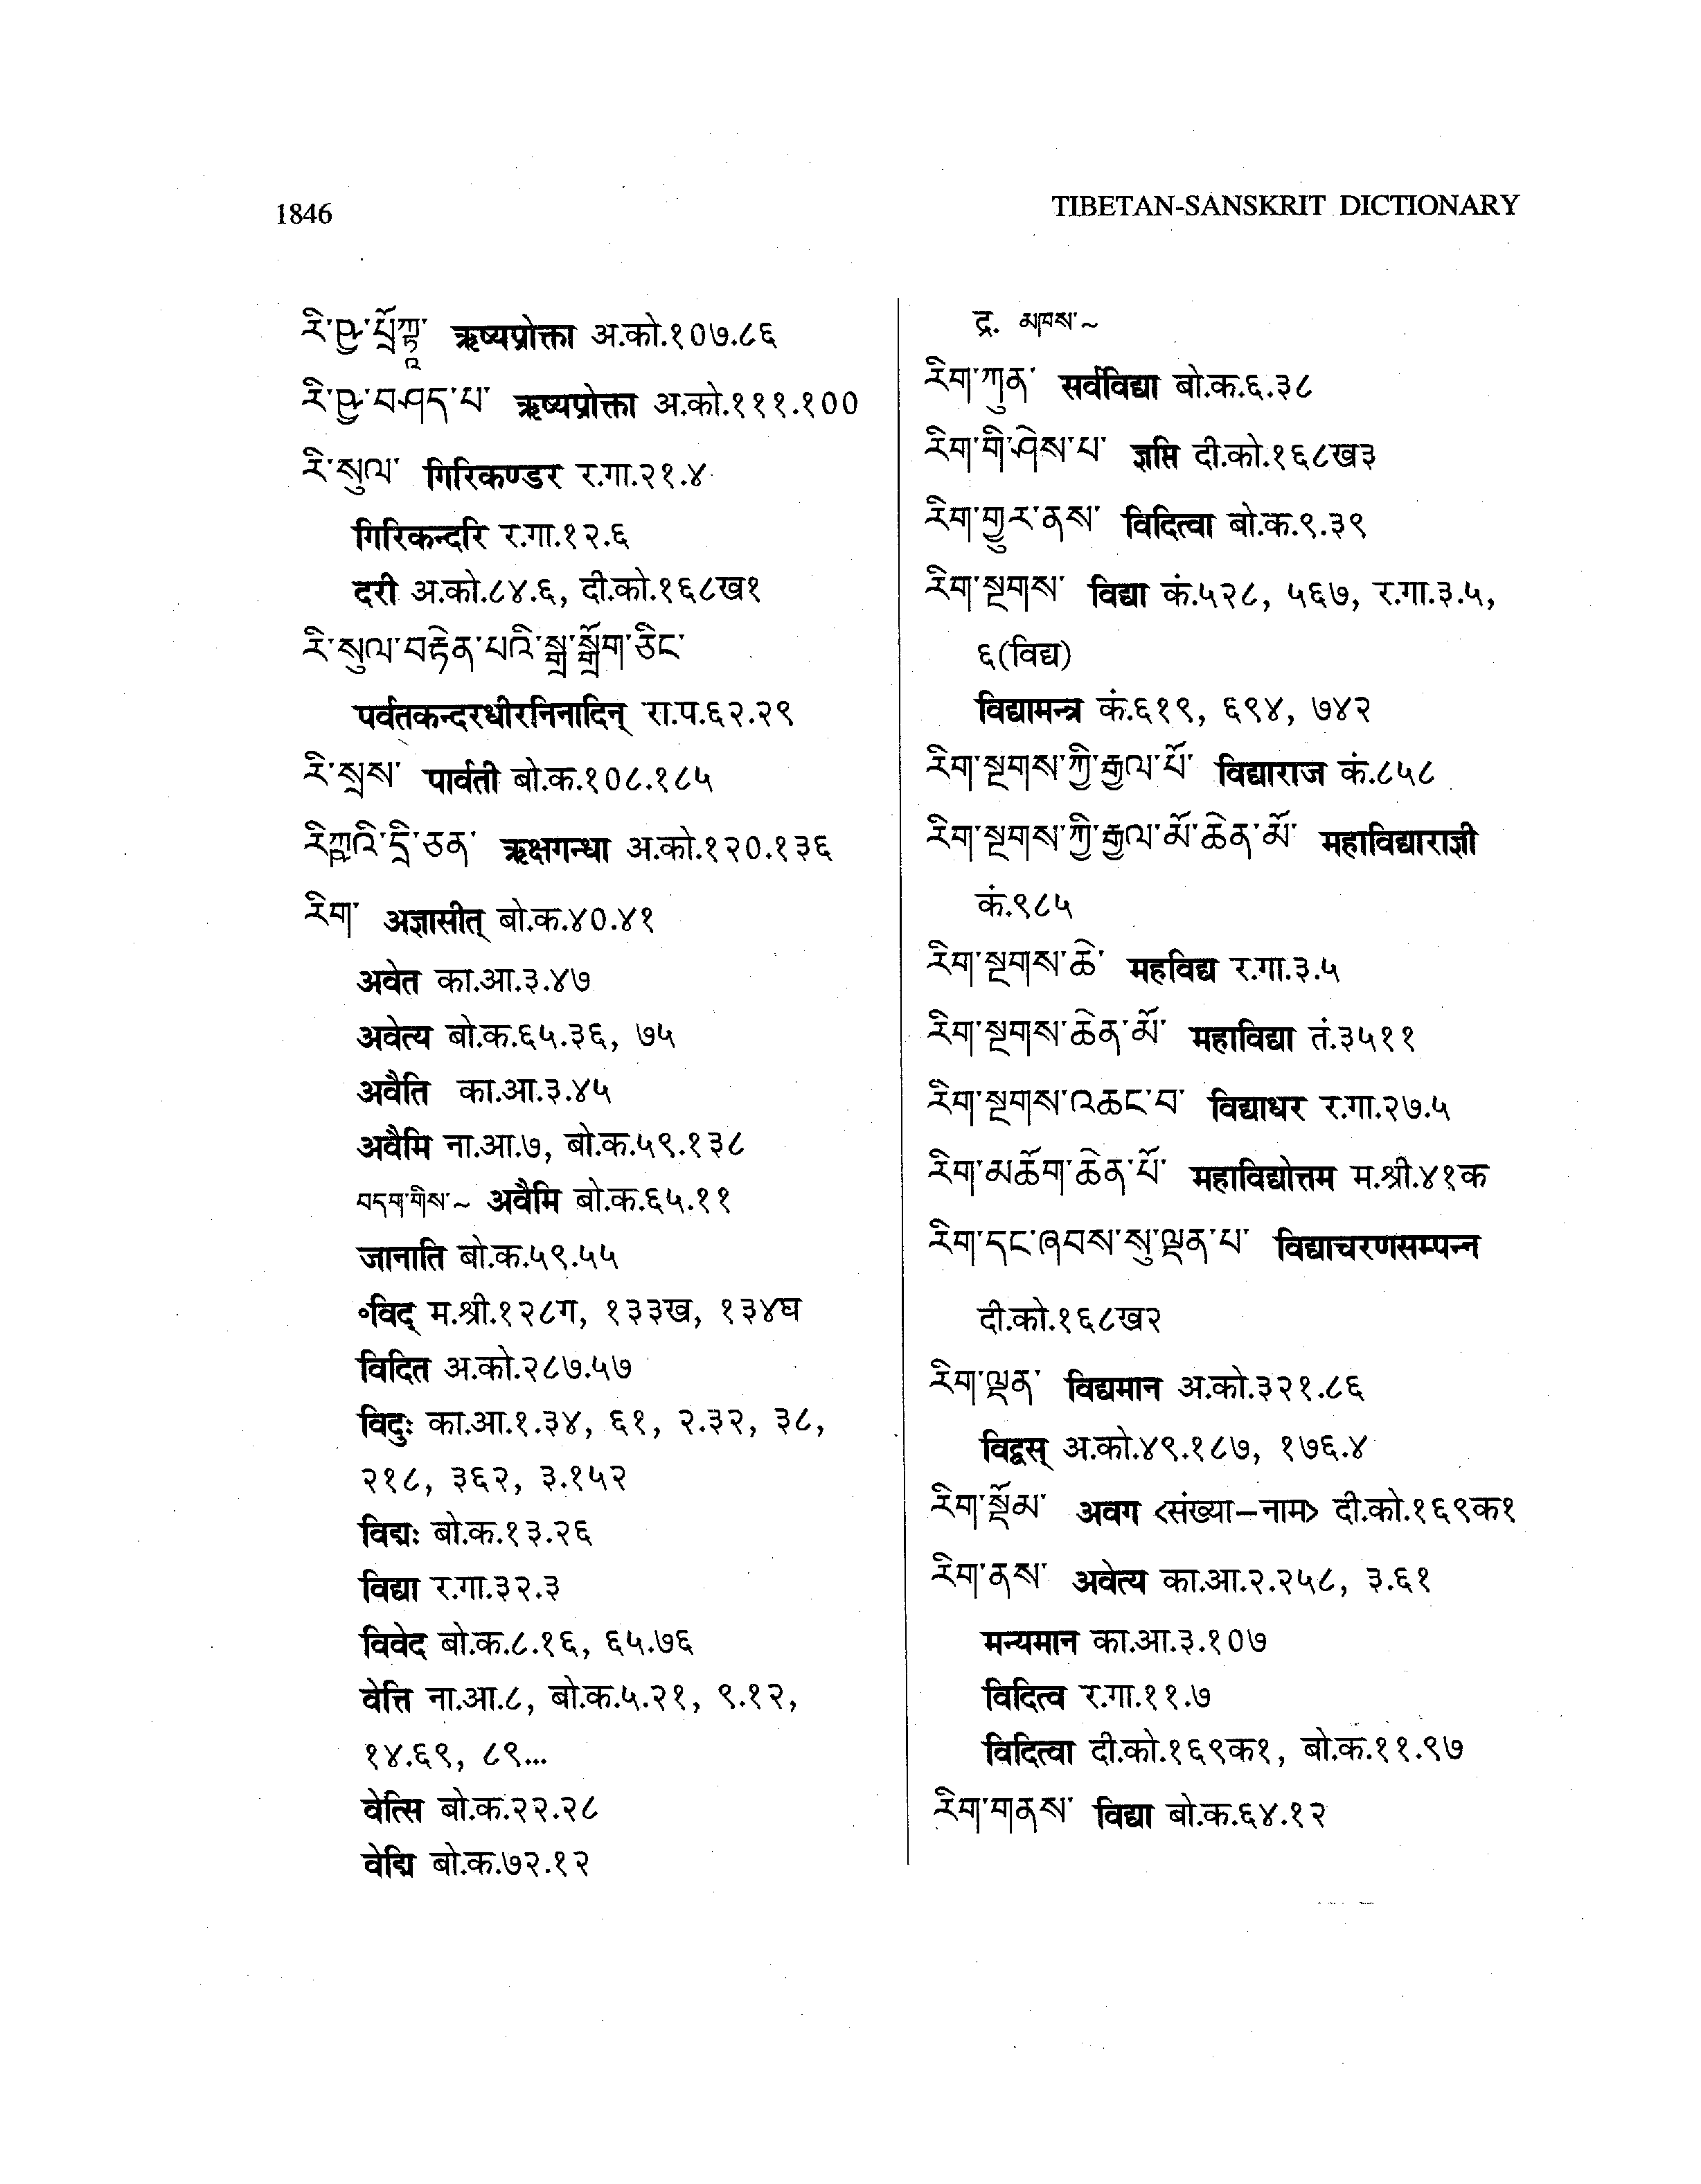 1846
TIBETAN-SANSKRIT DICTIONARY
རི་ཥྱ་པྲོཀྟཱ་ ऋष्यप्रोक्ता अ.को.१०७.८६
རི་ཥྱ་བཤད་པ་ ऋष्यप्रोक्ता अ.को.१११.१००
རི་སུལ་ गिरिकण्डर र.गा.२१.४
गिरिकन्दरि र.गा.१२.६
दरी अ.को.८४.६, दी.को.१६८ख१
རི་སུལ་བརྟེན་པའི་སྒྲ་སྒྲོག་ཅིང་
पर्वतकन्दरधीरनिनादिन् रा.प.६२.२९
རི་སྲས་ पार्वती बो.क.१०८.१८५
རིཀྵའི་དྲི་ཅན་ ऋक्षगन्धा अ.को.१२०.१३६
རིག་ अज्ञासीत् बो.क.४०.४१
अवेत का.आ.३.४७
अवेत्य बो.क.६५.३६, ७५
अवैति का.आ.३.४५
अवैमि ना.आ.७, बो.क.५९.१३८
བདག་གིས་~ अवैमि बो.क.६५.११
जानाति बो.क.५९.५५
॰विद् म.श्री.१२८ग, १३३ख, १३४घ
विदित अ.को.२८७.५७
विदुः का.आ.१.३४, ६१, २.३२, ३८,
२१८, ३६२, ३.१५२
विद्मः बो.क.१३.२६
विद्या र.गा.३२.३
विवेद बो.क.८.१६, ६५.७६
वेत्ति ना.आ.८, बो.क.५.२१, ९.१२,
१४.६९, ८९...
वेत्सि बो.क.२२.२८
वेद्मि बो.क.७२.१२
द्र. མཁས་~
རིག་ཀུན་ सर्वविद्या बो.क.६.३८
རིག་གི་ཤེས་པ་ ज्ञप्ति दी.को.१६८ख३
རིག་གྱུར་ནས་ विदित्वा बो.क.९.३९
རིག་སྔགས་ विद्या कं.५२८, ५६७, र.गा.३.५,
६(विद्य)
विद्यामन्त्र कं.६१९, ६९४, ७४२
རིག་སྔགས་ཀྱི་རྒྱལ་པོ་ विद्याराज कं.८५८
རིག་སྔགས་ཀྱི་རྒྱལ་མོ་ཆེན་མོ་ महाविद्याराज्ञी
कं.९८५
རིག་སྔགས་ཆེ་ महविद्य र.गा.३.५
རིག་སྔགས་ཆེན་མོ་ महाविद्या तं.३५११
རིག་སྔགས་འཆང་བ་ विद्याधर र.गा.२७.५
རིག་མཆོག་ཆེན་པོ་ महाविद्योत्तम म.श्री.४१क
རིག་དང་ཞབས་སུ་ལྡན་པ་ विद्याचरणसम्पन्न
दी.को.१६८ख२
རིག་ལྡན་ विद्यमान अ.को.३२१.८६
विद्वस् अ.को.४९.१८७, १७६.४
རིག་སྡོམ་ अवग <संख्या–नाम> दी.को.१६९क१
རིག་ནས་ अवेत्य का.आ.२.२५८, ३.६१
मन्यमान का.आ.३.१०७
विदित्व र.गा.११.७
विदित्वा दी.को.१६९क१, बो.क.११.९७
རིག་གནས་ विद्या बो.क.६४.१२